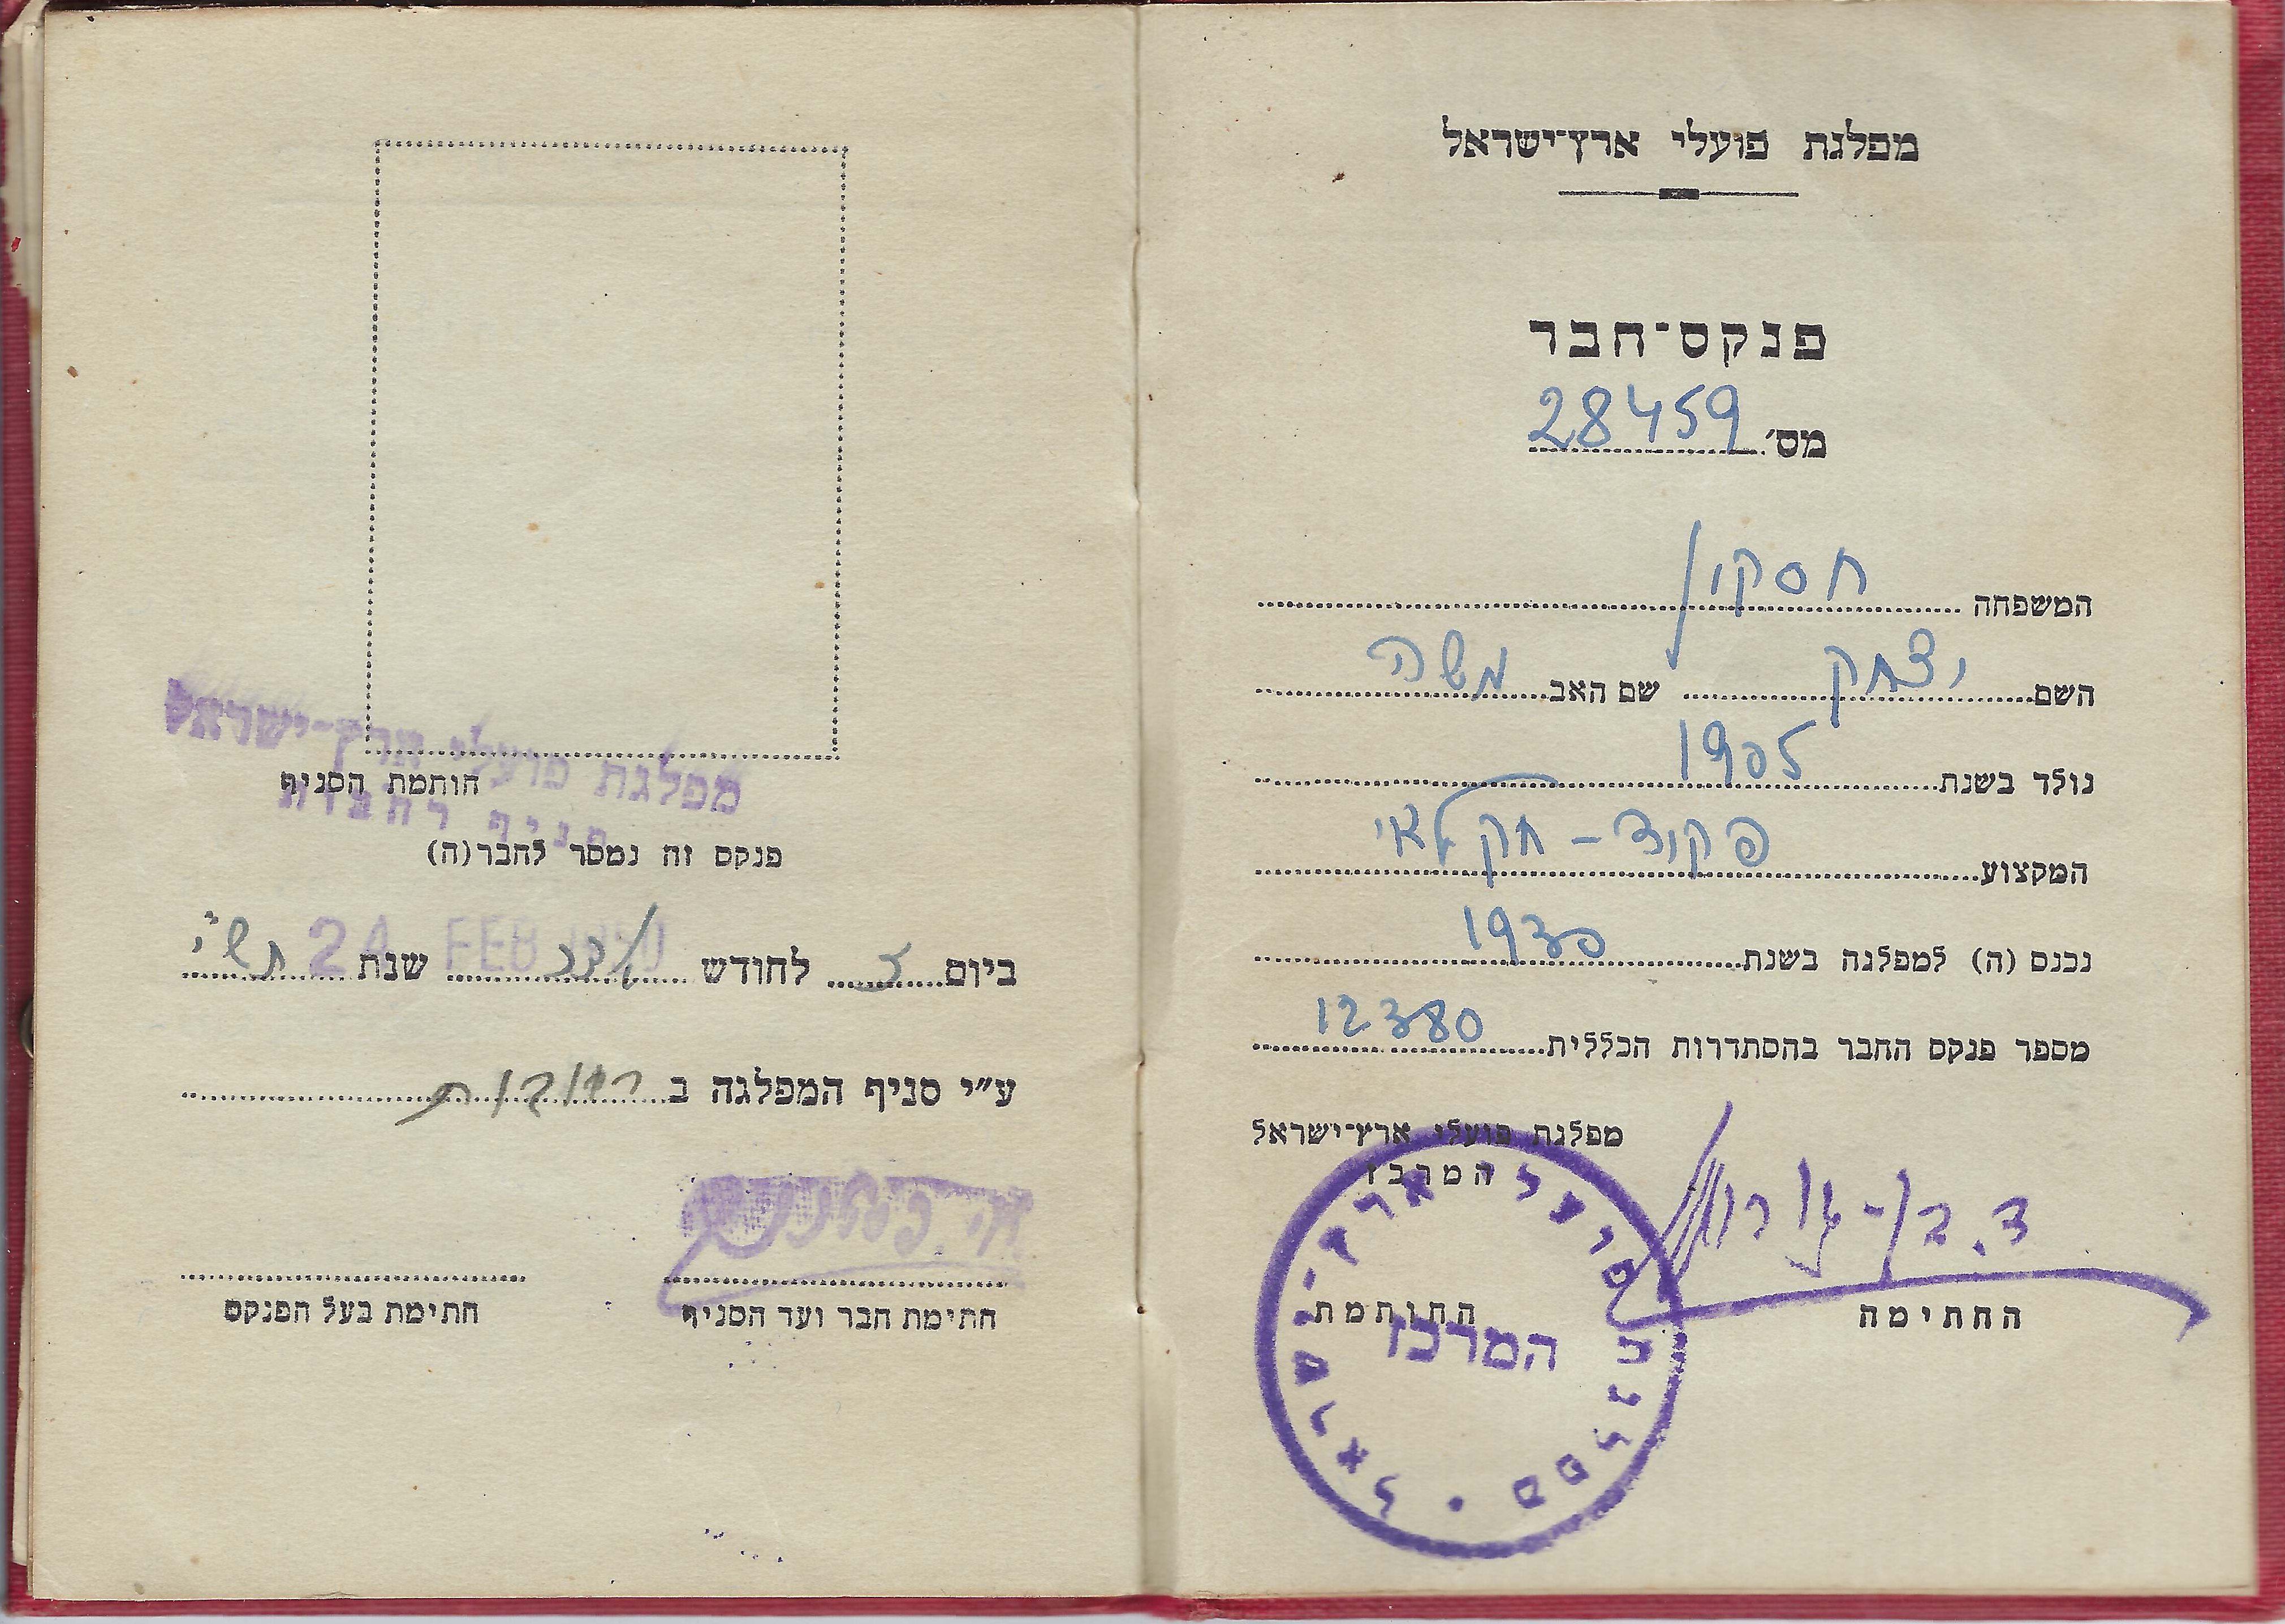 מפלגת פועלי ארץ־ישראל
פנקס־חבר
מס׳ 28459
המשפחה חסקין
השם יצחק שם האב משה
נולד בשנת 1905
המקצוע פקיד - חקלאי
נכנס (ה) למפלגה בשנת 1930
מספר פנקס החבר בהסתדרות הכללית 12380
מפלגת פועלי ארץ־ישראל
המרכז
ד. בן-גוריון
החתימה החותמת
מפלגת פועלי ארץ-ישראל
המרכז
מפלגת פועלי ארץ-ישראל
סניף רחובות
חותמת הסניף
פנקס זה נמסר לחבר(ה)
24 FEB 1950
ביום לחודש אדר שנת תש"י
ע״י סניף המפלגה ב רחובות
חתימת חבר ועד הסניף חתימת בעל הפנקס